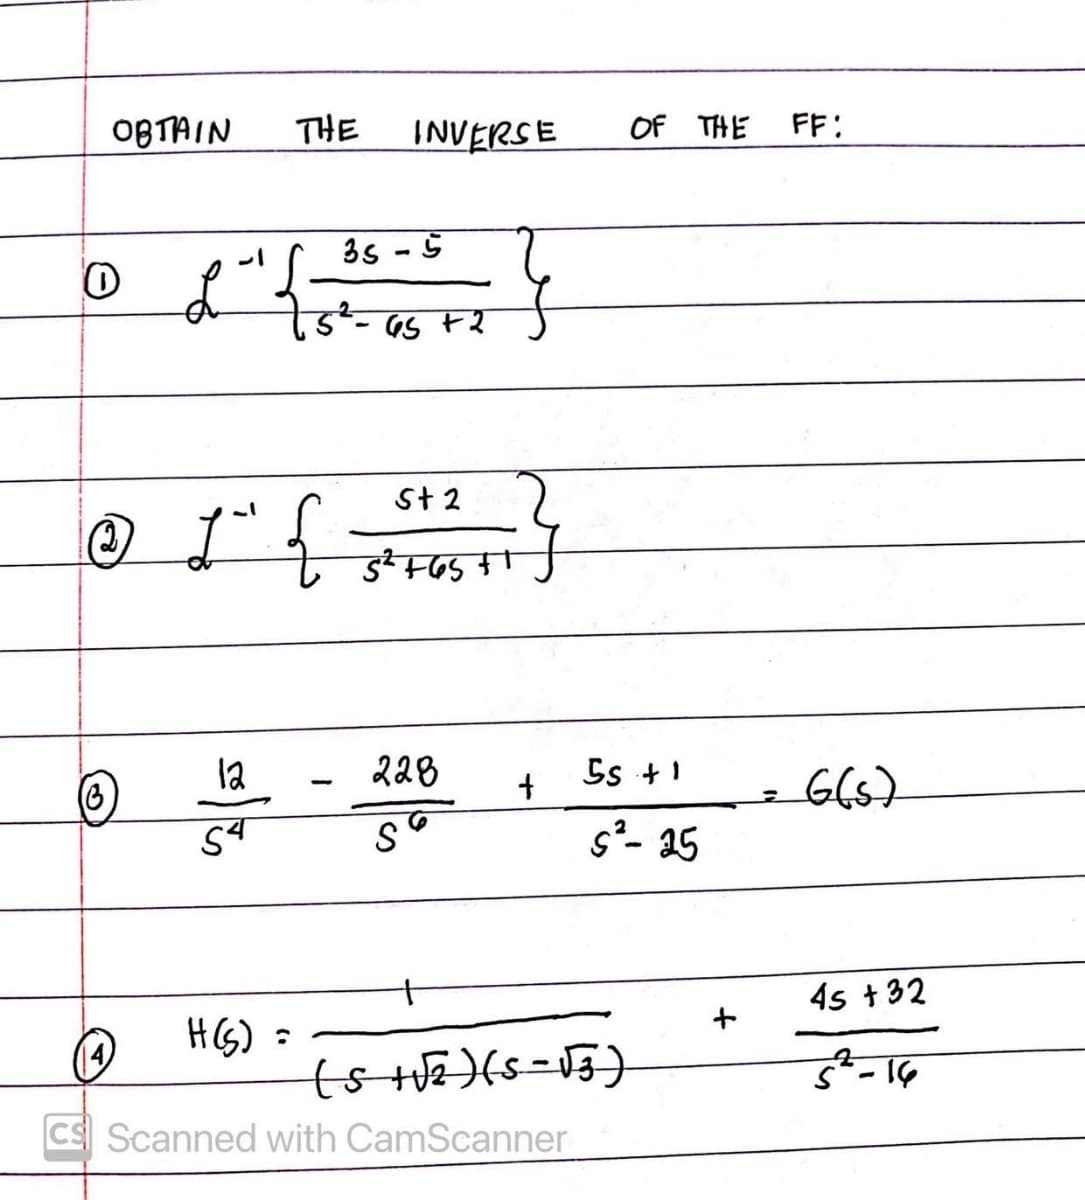 OBTAIN THE INVERSE OF THE FF:
① ℒ⁻¹ { (3s - 5) / (s² - 6s + 2) }
② ℒ⁻¹ { (s + 2) / (s² + 6s + 1) }
③ 12 / s⁴ - 228 / s⁶ + (5s + 1) / (s² - 25) = G(s)
④ H(s) = 1 / (s + √2)(s - √3) + (4s + 32) / (s² - 16)
CS Scanned with CamScanner